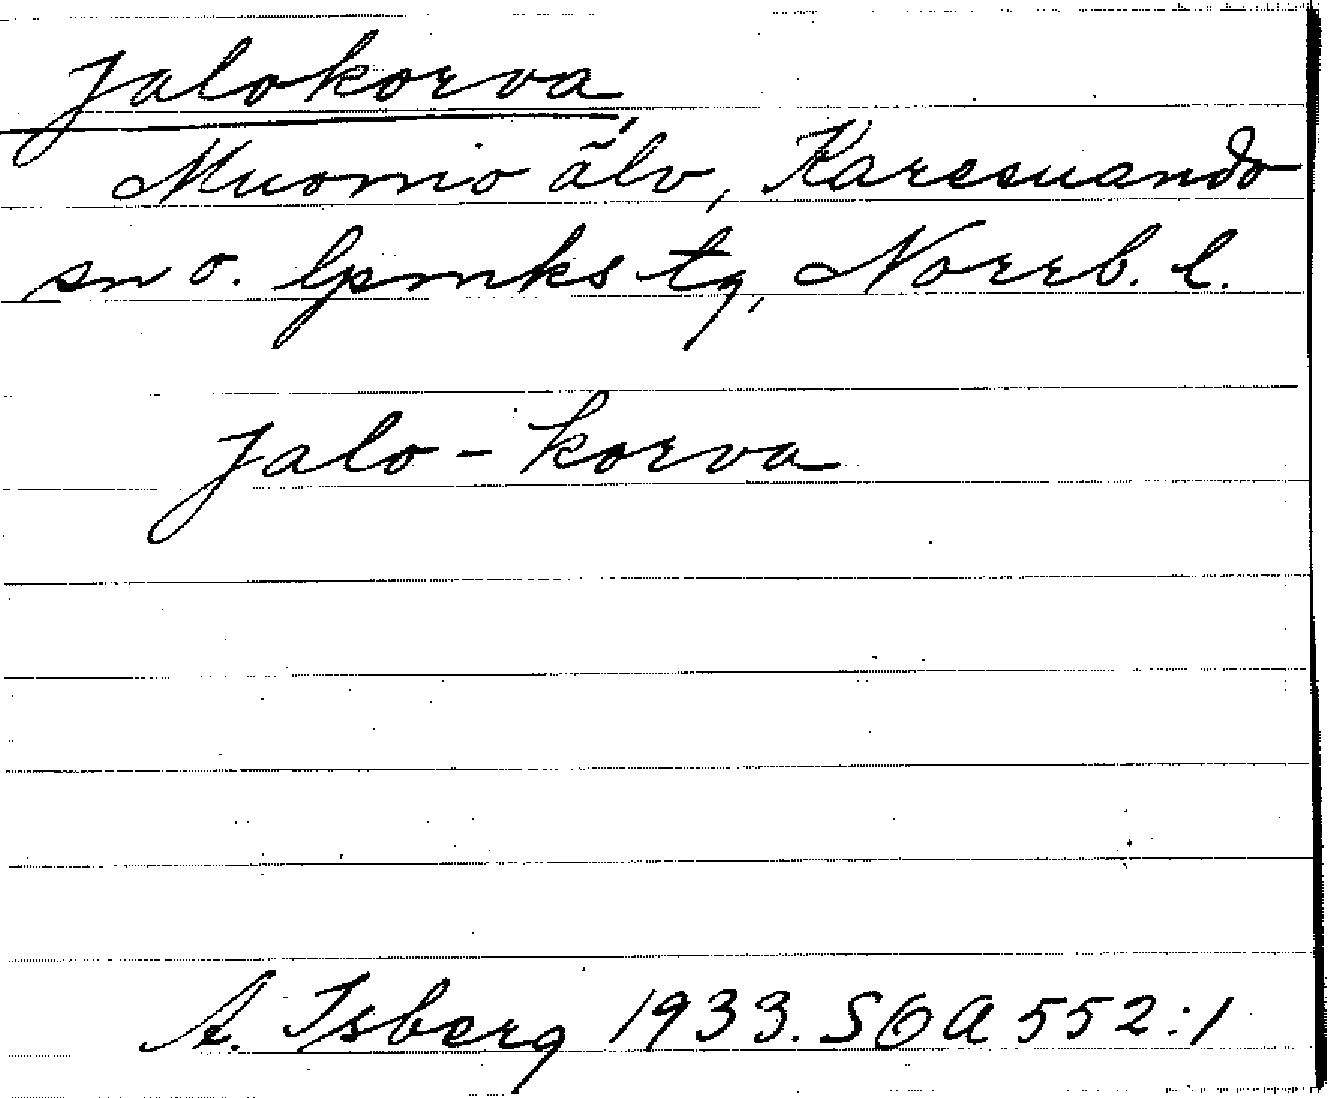 Jalokorva,
Muonio älv, Karesuando
sn o. lpmks tg, Norrb. l.
Jalo-korva
A. Isberg 1933. SOA 552:1